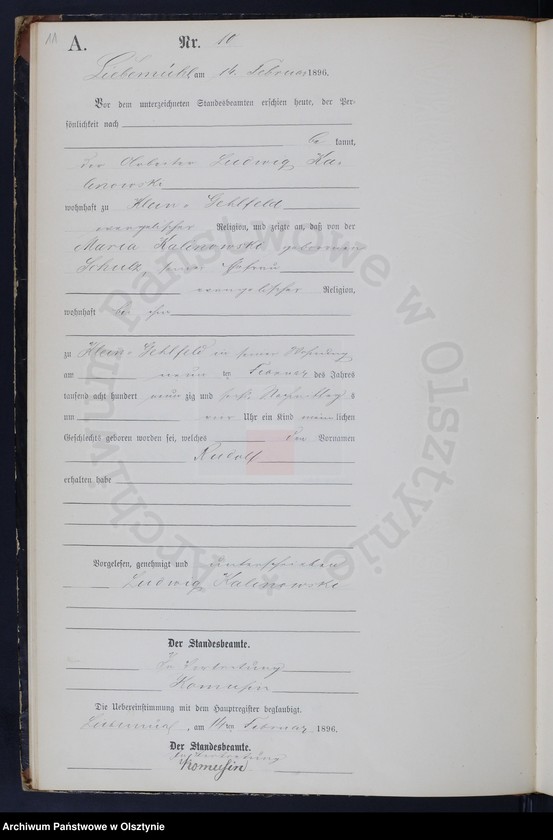 11
A. Nr. 10
Liebemühl am 14. Februar 1896.
Vor dem unterzeichneten Standesbeamten erschien heute, der Per-
sönlichkeit nach
be kannt,
der Arbeiter Ludwig Ka-
linowski
wohnhaft zu Klein Gehlfeld
evangelischer Religion, und zeigte an, daß von der
Maria Kalinowski geborenen
Schulz, seiner Ehefrau
evangelischer Religion,
wohnhaft bei ihm
zu Klein Gehlfeld in seiner Wohnung
am neun ten Februar des Jahres
tausend acht hundert neun zig und sechs Nachmittag s
um vier Uhr ein Kind männ lichen
Geschlechts geboren worden sei, welches den Vornamen
Rudolf
erhalten habe
Vorgelesen, genehmigt und unterschrieben
Ludwig Kalinowski
Der Standesbeamte.
In Vertretung
Komusin
Die Uebereinstimmung mit dem Hauptregister beglaubigt.
Liebemühl, am 14ten Februar 1896.
Der Standesbeamte.
In Vertretung
Komusin
Archiwum Państwowe w Olsztynie
Archiwum Państwowe w Olsztynie